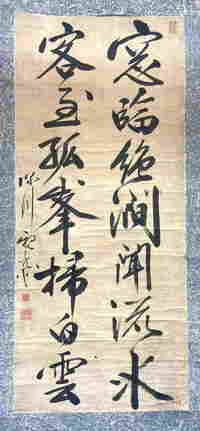 窓臨絶澗聞流水
客至孤峯掃白雲